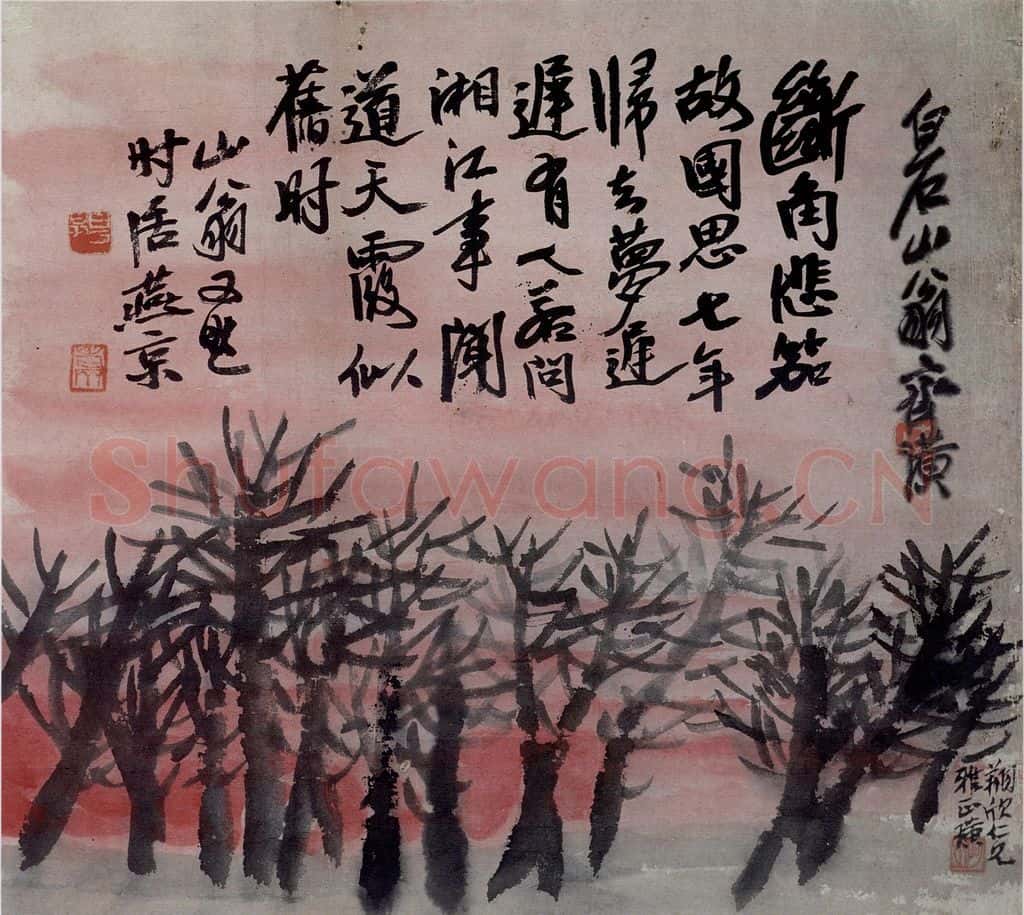 白石山翁齊璜
斷角悲笳
故國思七年
歸去夢遲
遲有人若問
湘江事聞
道天霞似
舊时
山翁又題
时居燕京
欣仁兄
雅正璜
Shufawang.CN